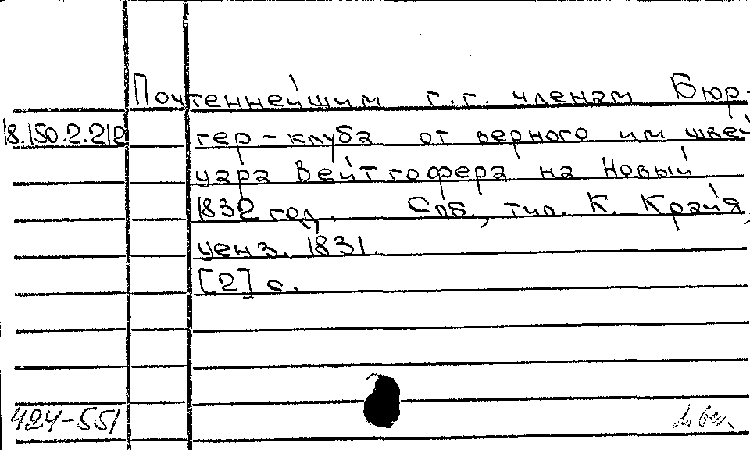 Почтеннейшим г.г. членам Бюр-
18.150.2.212 гер-клуба от верного им швей
цара Вейтгофера на Новый
1832 год. Спб, тип. К. Крайя,
ценз. 1831.
[2] с.
424-551